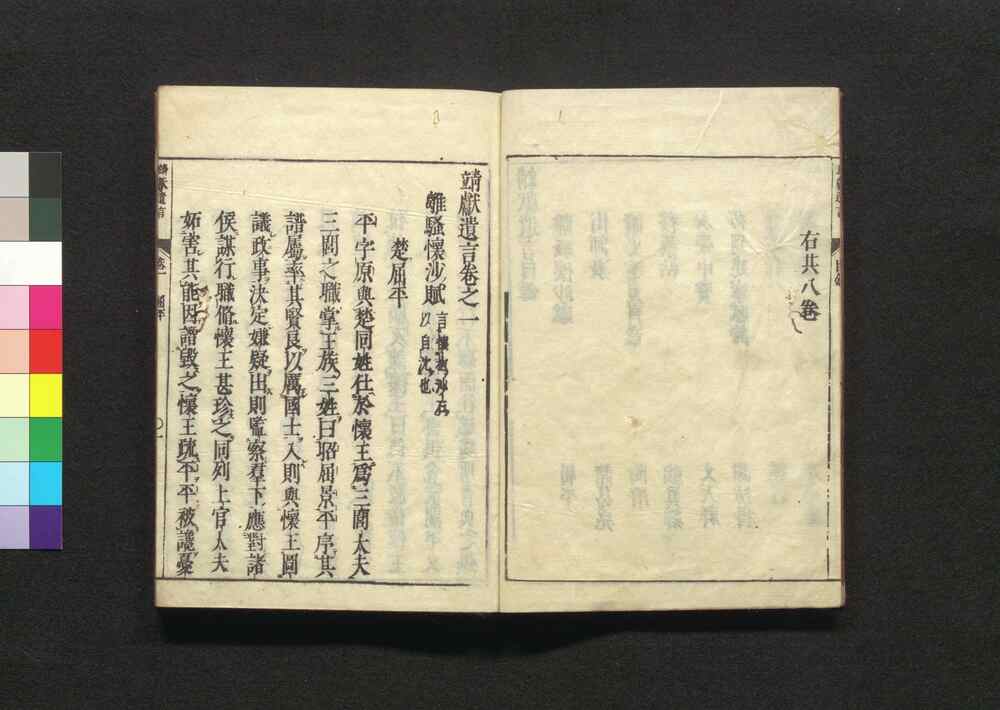 右共八卷
靖獻遺言卷之一
離騷懷沙賦 言懷抱沙石以自沈也
楚屈平
平字原與楚同姓仕於懷王爲三閭大夫
三閭之職掌王族三姓曰昭屈景平序其
譜屬率其賢良以厲國士入則與懷王圖
議政事決定嫌疑出則監察羣下應對諸
侯謀行職脩懷王甚珍之同列上官大夫
妬害其能因譖毀之懷王疏平平被讒憂
靖獻遺言
卷一
屈平